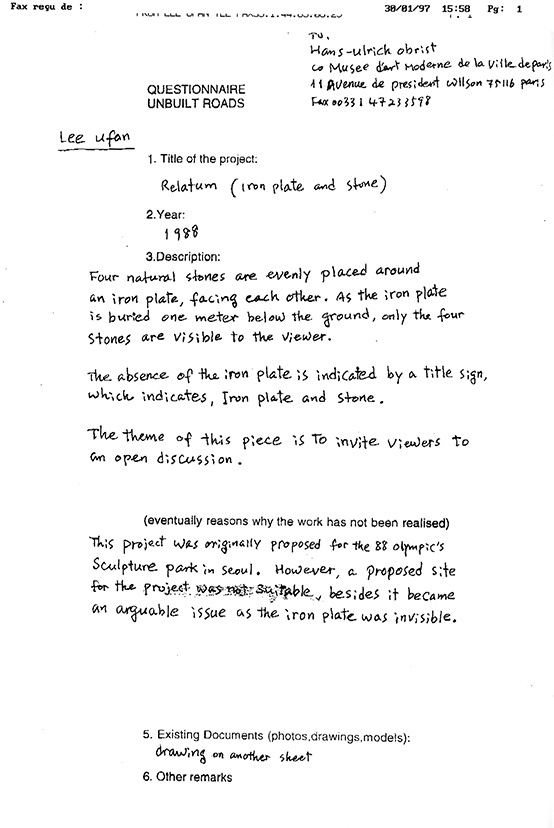 Fax reçu de : 30/01/97 15:58 Pg: 1
TO,
Hans-ulrich obrist
co Musee d'art Moderne de la Ville de paris
11 Avenue de president Wilson 75116 paris
Fax 00331 47233598
QUESTIONNAIRE
UNBUILT ROADS
Lee ufan
1. Title of the project:
Relatum (iron plate and stone)
2.Year:
1988
3.Description:
Four natural stones are evenly placed around
an iron plate, facing each other. As the iron plate
is buried one meter below the ground, only the four
stones are visible to the viewer.
The absence of the iron plate is indicated by a title sign,
which indicates, Iron plate and stone.
The theme of this piece is to invite viewers to
an open discussion.
(eventually reasons why the work has not been realised)
This project was originally proposed for the 88 olympic's
Sculpture park in seoul. However, a proposed site
for the project was not suitable, besides it became
an arguable issue as the iron plate was invisible.
5. Existing Documents (photos,drawings,models):
drawing on another sheet
6. Other remarks